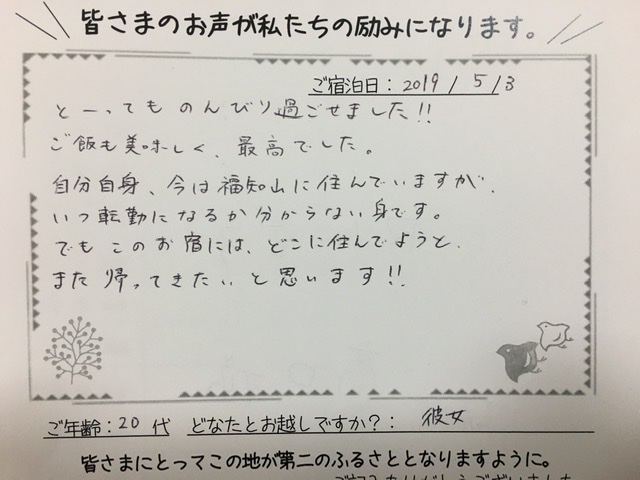 皆さまのお声が私たちの励みになります。
ご宿泊日：2019/5/3
とーってものんびり過ごせました!!
ご飯も美味しく、最高でした。
自分自身、今は福知山に住んでいますが、
いつ転勤になるか分からない身です。
でもこのお宿には、どこに住んでようと、
また帰ってきたいと思います!!
ご年齢：20代 どなたとお越しですか？：彼女
皆さまにとってこの地が第二のふるさととなりますように。